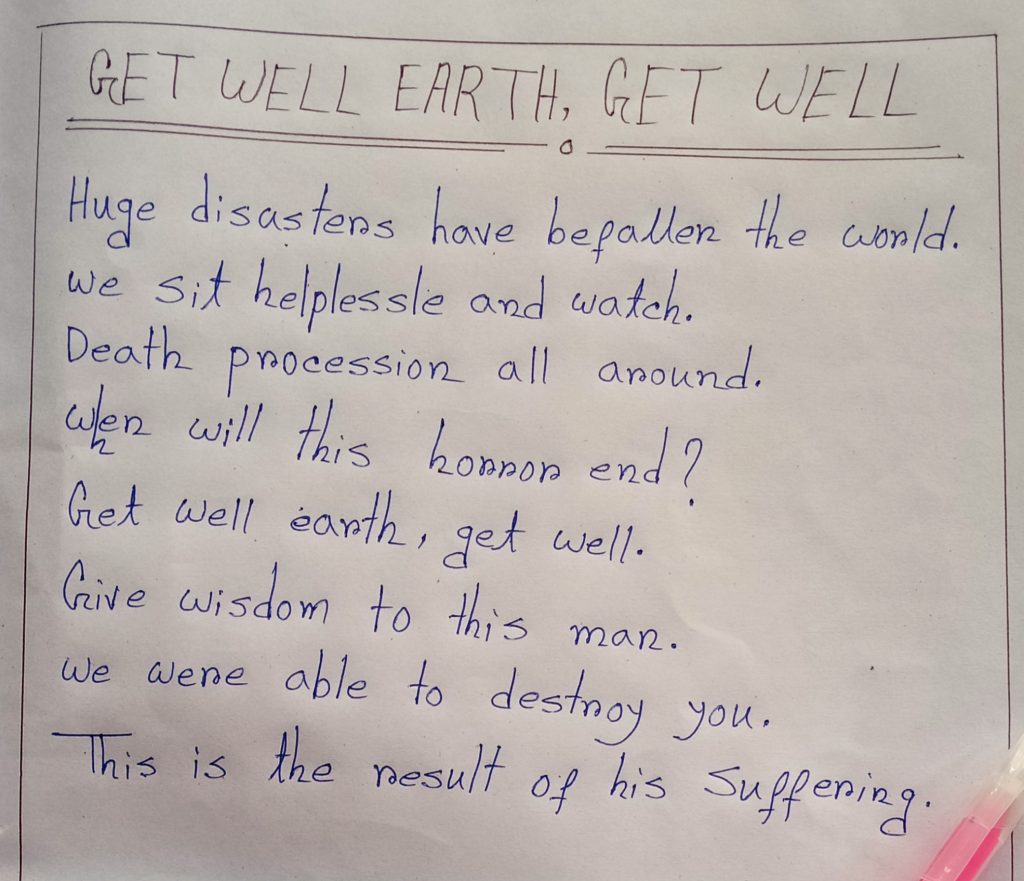 GET WELL EARTH, GET WELL
Huge disasters have befallen the world.
We sit helplessle and watch.
Death procession all around.
When will this horror end?
Get well earth, get well.
Give wisdom to this man.
We were able to destroy you.
This is the result of his suffering.